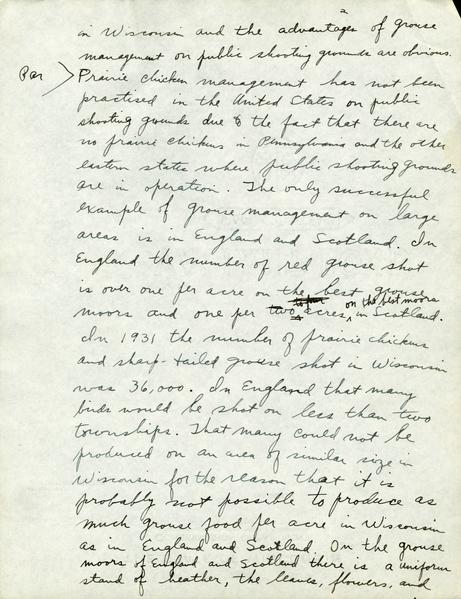 2
in Wisconsin and the advantages of grouse
management on public shooting grounds are obvious.
Par > Prairie chicken management has not been
practised in the United States on public
shooting grounds due to the fact that there are
no prairie chickens in Pennsylvania and the other
eastern states where public shooting grounds
are in operation. The only successful
example of grouse management on large
areas is in England and Scotland. In
England the number of red grouse shot
is over one per acre on the best grouse
on the best moors
moors and one per two acres, in Scotland.
In 1931 the number of prairie chickens
and sharp-tailed grouse shot in Wisconsin
was 36,000. In England that many
birds would be shot on less than two
townships. That many could not be
produced on an area of similar size in
Wisconsin for the reason that it is
probably not possible to produce as
much grouse food per acre in Wisconsin
as in England and Scotland. On the grouse
moors of England and Scotland there is a uniform
stand of heather, the leaves, flowers, and